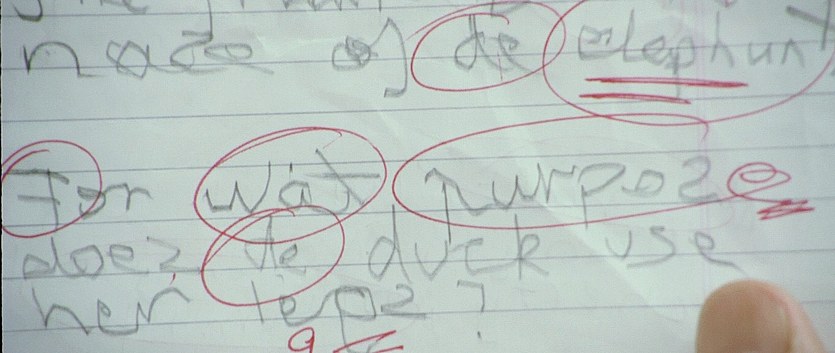 nose of de elephunt
For wat purpose
does de duck use
her leps?